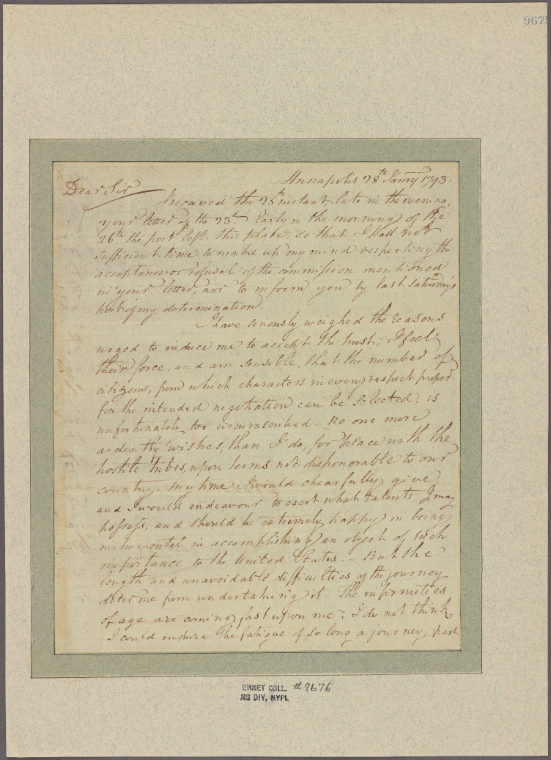 967
Annapolis 28th Janry 1793.
Dear Sir
I received the 25th instant late in the evening
your letter of the 23rd. Early in the morning of the
26th the post left this place, so that I had not
sufficient time to make up my mind respecting the
acceptance or refusal of the commission mentioned
in your letter, nor to inform you by last saturday's
post of my determination.
I have seriously weighed the reasons
urged to induce me to accept the trust; I feel
their force, and am sensible, that the number of
citizens, from which characters in every respect proper
for the intended negotiation can be selected, is
unfortunately too circumscribed. No one more
ardently wishes, than I do, for peace with the
hostile tribes, upon terms not dishonorable to our
country. My time I would chearfully give
and I would endeavour to exert what talents I may
possess, and should be extremely happy in being
instrumental in accomplishing an object of such
importance to the United States. — But the
length and unavoidable difficulties of the journey
deter me from undertaking it. The infirmities
of age are coming fast upon me; I do not think
I could endure the fatigue of so long a journey,
EMMET COLL. #9676
MS DIV, NYPL